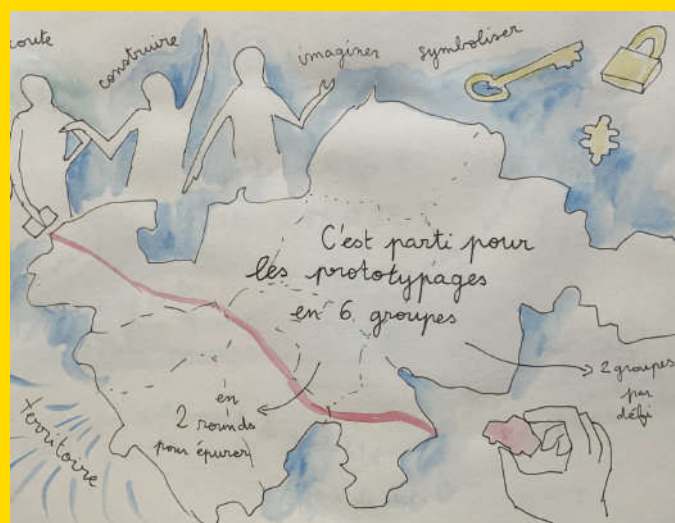 coute
construire
imaginer
symboliser
C'est parti pour
les prototypages
en 6 groupes
en
2 rounds
pour épurer
2 groupes
par
défi
territoire